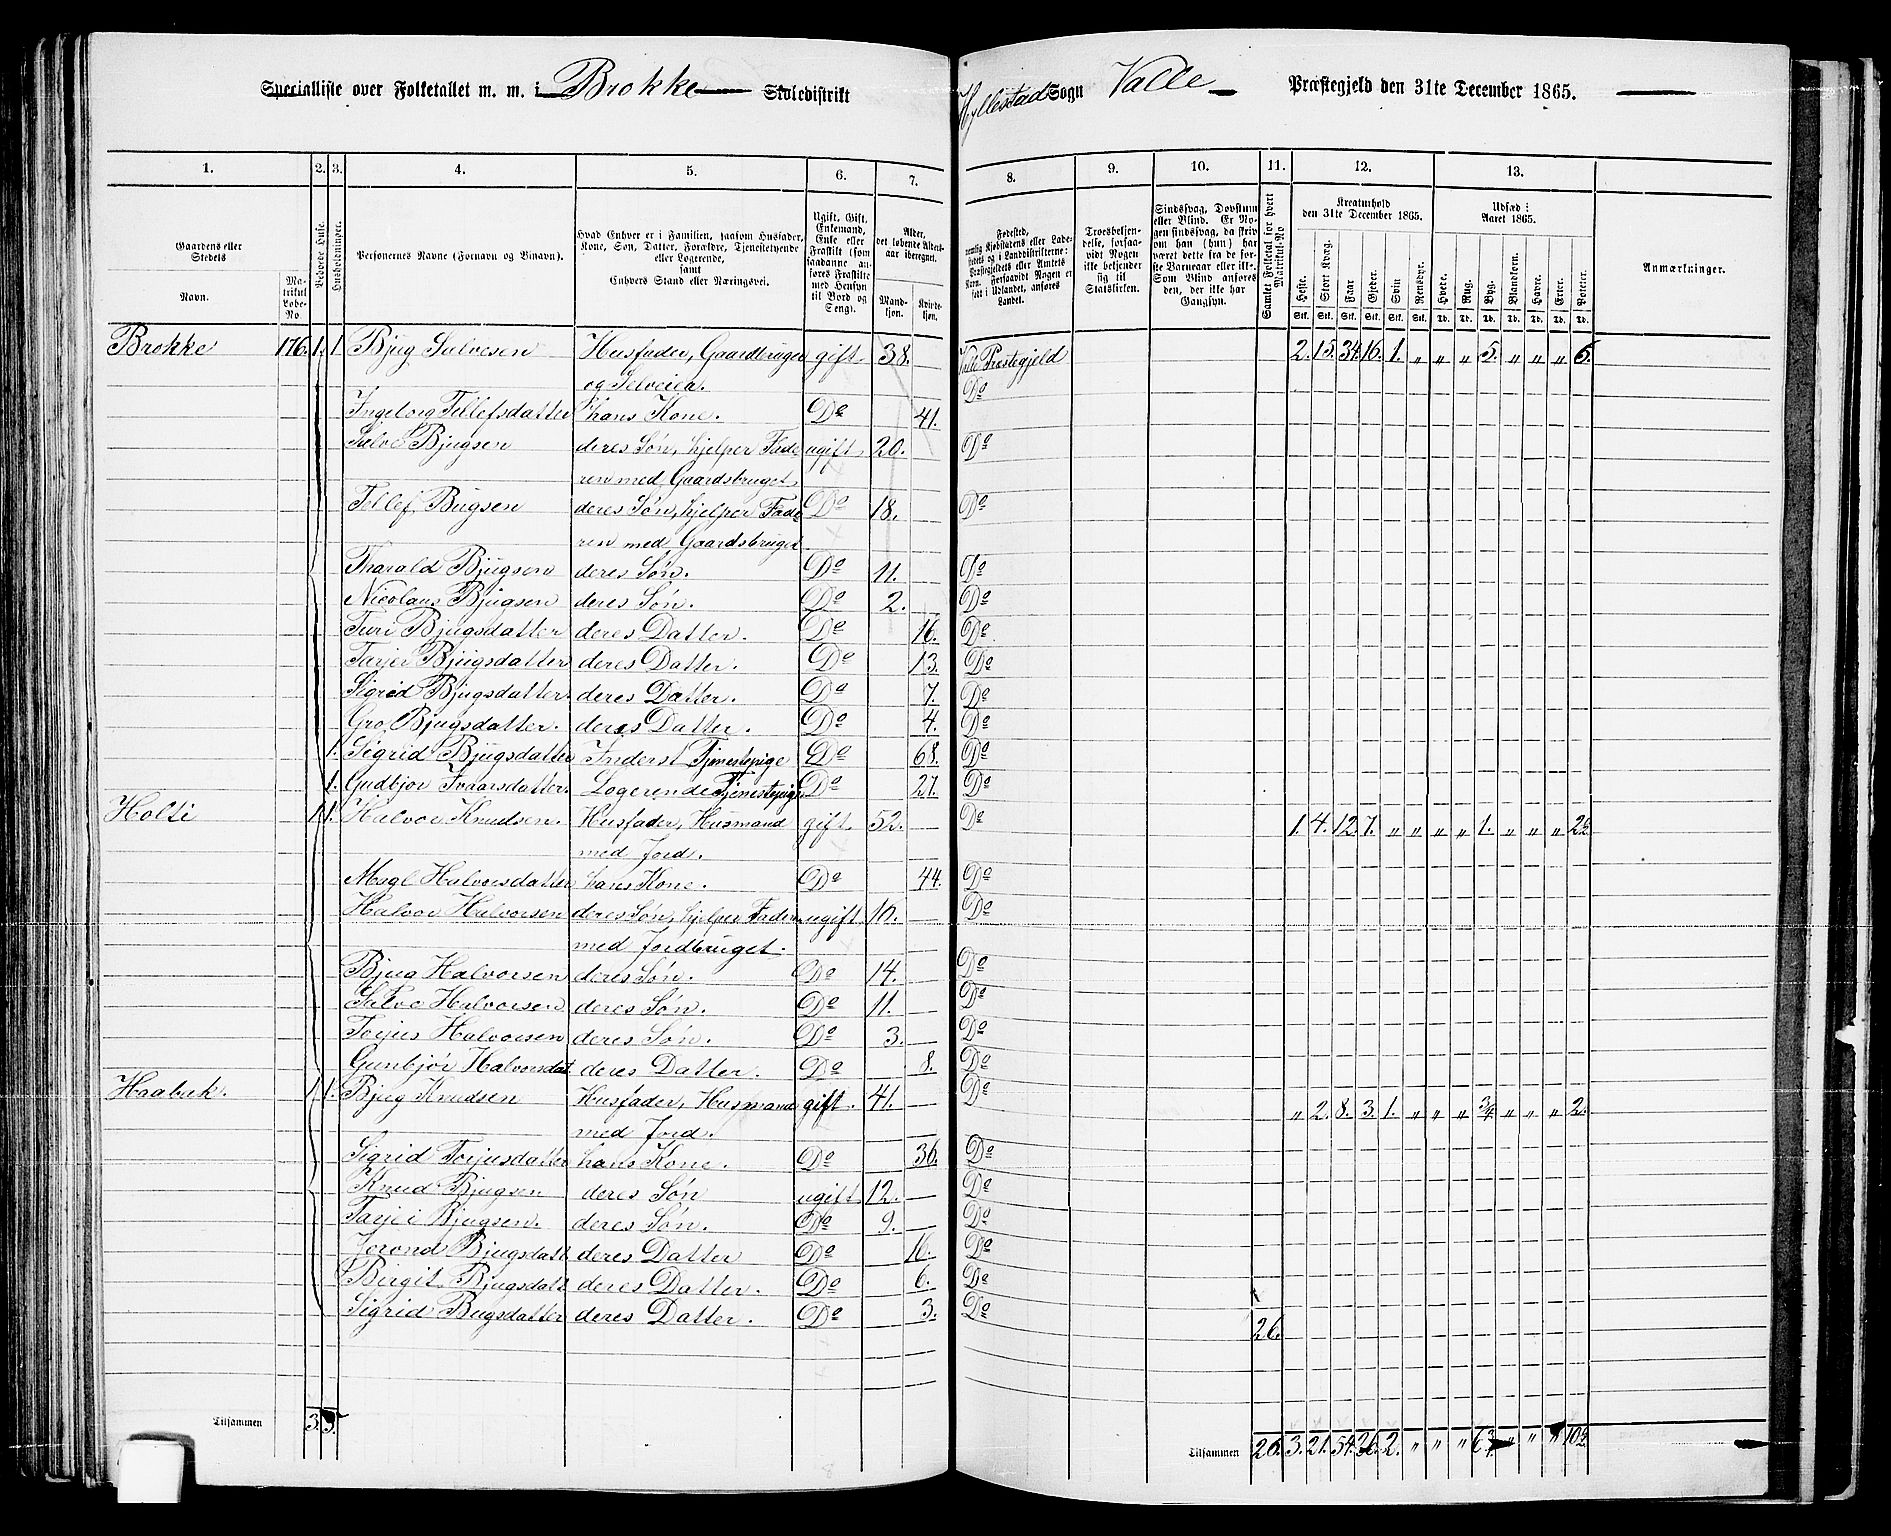 Specialliste over Folketallet m. m. i Brokke Skoledistrikt
Hyllestad Sogn Valle Præstegjeld den 31te December 1865.
1. 2. 3. 4. 5. 6. 7. 8. 9. 10. 11. 12. 13.
Gaardens eller Stedets Navn.
Matrikul Løbe-No.
Beboede Huse.
Husholdninger.
Personernes Navne (Fornavn og Binavn).
Hvad Enhver er i Familien, saasom Husfader, Kone, Søn, Datter, Forældre, Tjenestetyende eller Logerende, samt Enhvers Stand eller Næringsvei.
Ugift, Gift, Enkemand, Enke eller Fraskilt (som saadanne anføres Fraskilte med Hensyn til Bord og Seng).
Alder, det løbende Aldersaar iberegnet.
Mandkjøn. Kvindekjøn.
Fødested,
Troesbekjendelse, forsaavidt Nogen ikke bekjender sig til Statskirken.
Sindssvag, Døvstum eller Blind. Er Nogen sindssvag, da skrives om han (hun) har været det fra de første Barneaar eller ikke. Som Blind anføres den, der ikke har Gangsyn.
Samlet Folketal for hvert Matrikul-No
Kreaturhold den 31te December 1865.
Heste. Stort Kvæg. Faar Gjeder. Svin Rensdyr.
Stk. Stk. Stk. Stk. Stk. Stk.
Udsæd i Aaret 1865.
Hvede. Rug. Byg. Blandkorn. Havre. Erter. Poteter.
Td. Td. Td. Td. Td. Td. Td.
Anmærkninger.
Brokke 176. 1. 1. Bjug Salvesen Husfader, Gaardbruger gift. 38. Valle Præstegjeld 2. 15. 34. 16. 1. " " " 5. " " " 6.
og Selveier. Do
Ingeborg Tellefsdatter hans Kone. Do 41.
Salve Bjugsen deres Søn, hjelper Fade ugift. 20. Do
ren med Gaardsbruget.
Tellef Bugsen deres Søn, hjelper Fade Do 18. Do
ren med Gaardsbruget
Tharald Bjugsen deres Søn. Do 11. Do
Nicolaus Bjugsen deres Søn. Do 2. Do
Turi Bjugsdatter deres Datter. Do 16. Do
Tarjer Bjugsdatter deres Datter. Do 13. Do
Sigrid Bjugsdatter. deres Datter. Do 7. Do
Gro Bjugsdatter. deres Datter. Do 4. Do
1. Sigrid Bjugsdatter Inderst Tjenestepige Do 68. Do
1. Gudbjor Ivaarsdatter. Logerende Tjenestepige Do 27. Do
Holti 1. 1. Halvor Knudsen. Husfader, Husmand gift. 52. Do 1. 4. 12. 7. " " " " 1. " " "
med Jord.
Magl Halvorsdatter hans Kone. Do 44. Do
Halvor Halvorsen deres Søn, hjelper Faderen ugift 16. Do
med Jordbruget.
Bjug Halvorsen deres Søn. Do 14. Do
Salve Halvorsen deres Søn. Do 11. Do
Torjus Halvorsen deres Søn. Do 3. Do
Gunbjør Halvorsdat deres Datter. Do 8. Do
Haabak. 1. 1. Bjug Knudsen Husfader, Husmand gift. 41. Do " 2. 8. 3. 1. " " " 3/4 " " " 2.
med Jord.
Sigrid Torjusdatter hans Kone. Do 36. Do
Knud Bjugsen deres Søn ugift 12. Do
Tarjei Bjugsen. deres Søn. Do 9. Do
Jorond Bjugsdatt deres Datter Do 16. Do
Birgit Bjugsdatt deres Datter. Do 6. Do
Sigrid Bugsdatter deres Datter. Do 3. Do
26.
Tilsammen 3. 5.
Tilsammen 26. 3. 21. 54. 26. 2. " " " 6 3/4 " " "